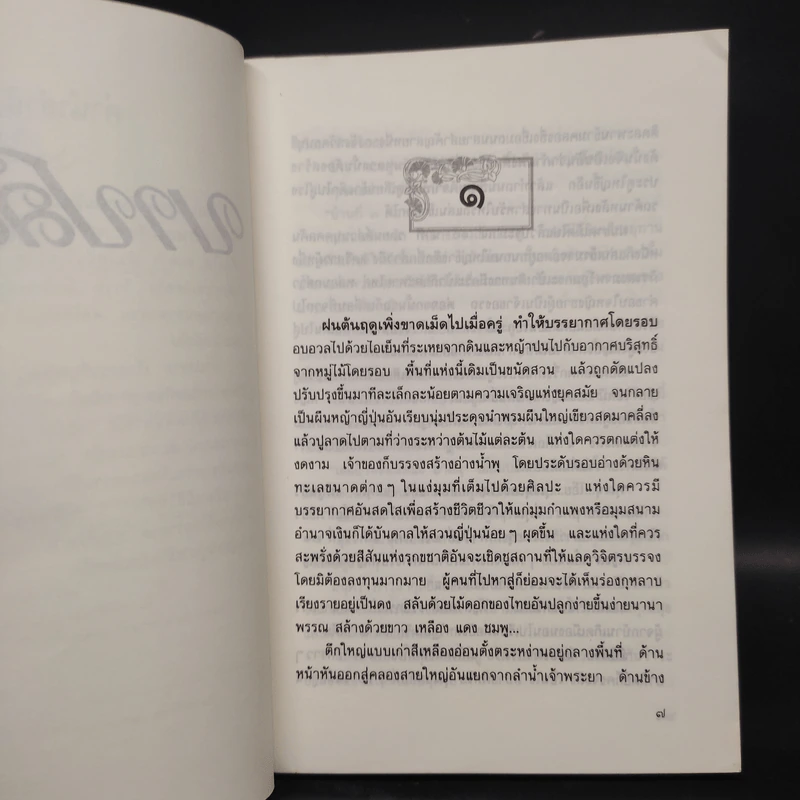 ๑
ฝนต้นฤดูเพิ่งขาดเม็ดไปเมื่อครู่ ทำให้บรรยากาศโดยรอบ
อบอวลไปด้วยไอเย็นที่ระเหยจากดินและหญ้าปนไปกับอากาศบริสุทธิ์
จากหมู่ไม้โดยรอบ พื้นที่แห่งนี้เดิมเป็นขนัดสวน แล้วถูกดัดแปลง
ปรับปรุงขึ้นมาทีละเล็กละน้อยตามความเจริญแห่งยุคสมัย จนกลาย
เป็นผืนหญ้าญี่ปุ่นอันเรียบนุ่มประดุจนำพรมผืนใหญ่เขียวสดมาคลี่ลง
แล้วปูลาดไปตามที่ว่างระหว่างต้นไม้แต่ละต้น แห่งใดควรตกแต่งให้
งดงาม เจ้าของก็บรรจงสร้างอ่างน้ำพุ โดยประดับรอบอ่างด้วยหิน
ทะเลขนาดต่าง ๆ ในแง่มุมที่เต็มไปด้วยศิลปะ แห่งใดควรมี
บรรยากาศอันสดใสเพื่อสร้างชีวิตชีวาให้แก่มุมกำแพงหรือมุมสนาม
อำนาจเงินก็ได้บันดาลให้สวนญี่ปุ่นน้อย ๆ ผุดขึ้น และแห่งใดที่ควร
สะพรั่งด้วยสีสันแห่งรุกขชาติอันจะเชิดชูสถานที่ให้แลดูวิจิตรบรรจง
โดยมิต้องลงทุนมากมาย ผู้คนที่ไปหาสู่ก็ย่อมจะได้เห็นร่องกุหลาบ
เรียงรายอยู่เป็นดง สลับด้วยไม้ดอกของไทยอันปลูกง่ายขึ้นง่ายนานา
พรรณ สล้างด้วยขาว เหลือง แดง ชมพู...
ตึกใหญ่แบบเก่าสีเหลืองอ่อนตั้งตระหง่านอยู่กลางพื้นที่ ด้าน
หน้าหันออกสู่คลองสายใหญ่อันแยกจากลำน้ำเจ้าพระยา ด้านข้าง
๗